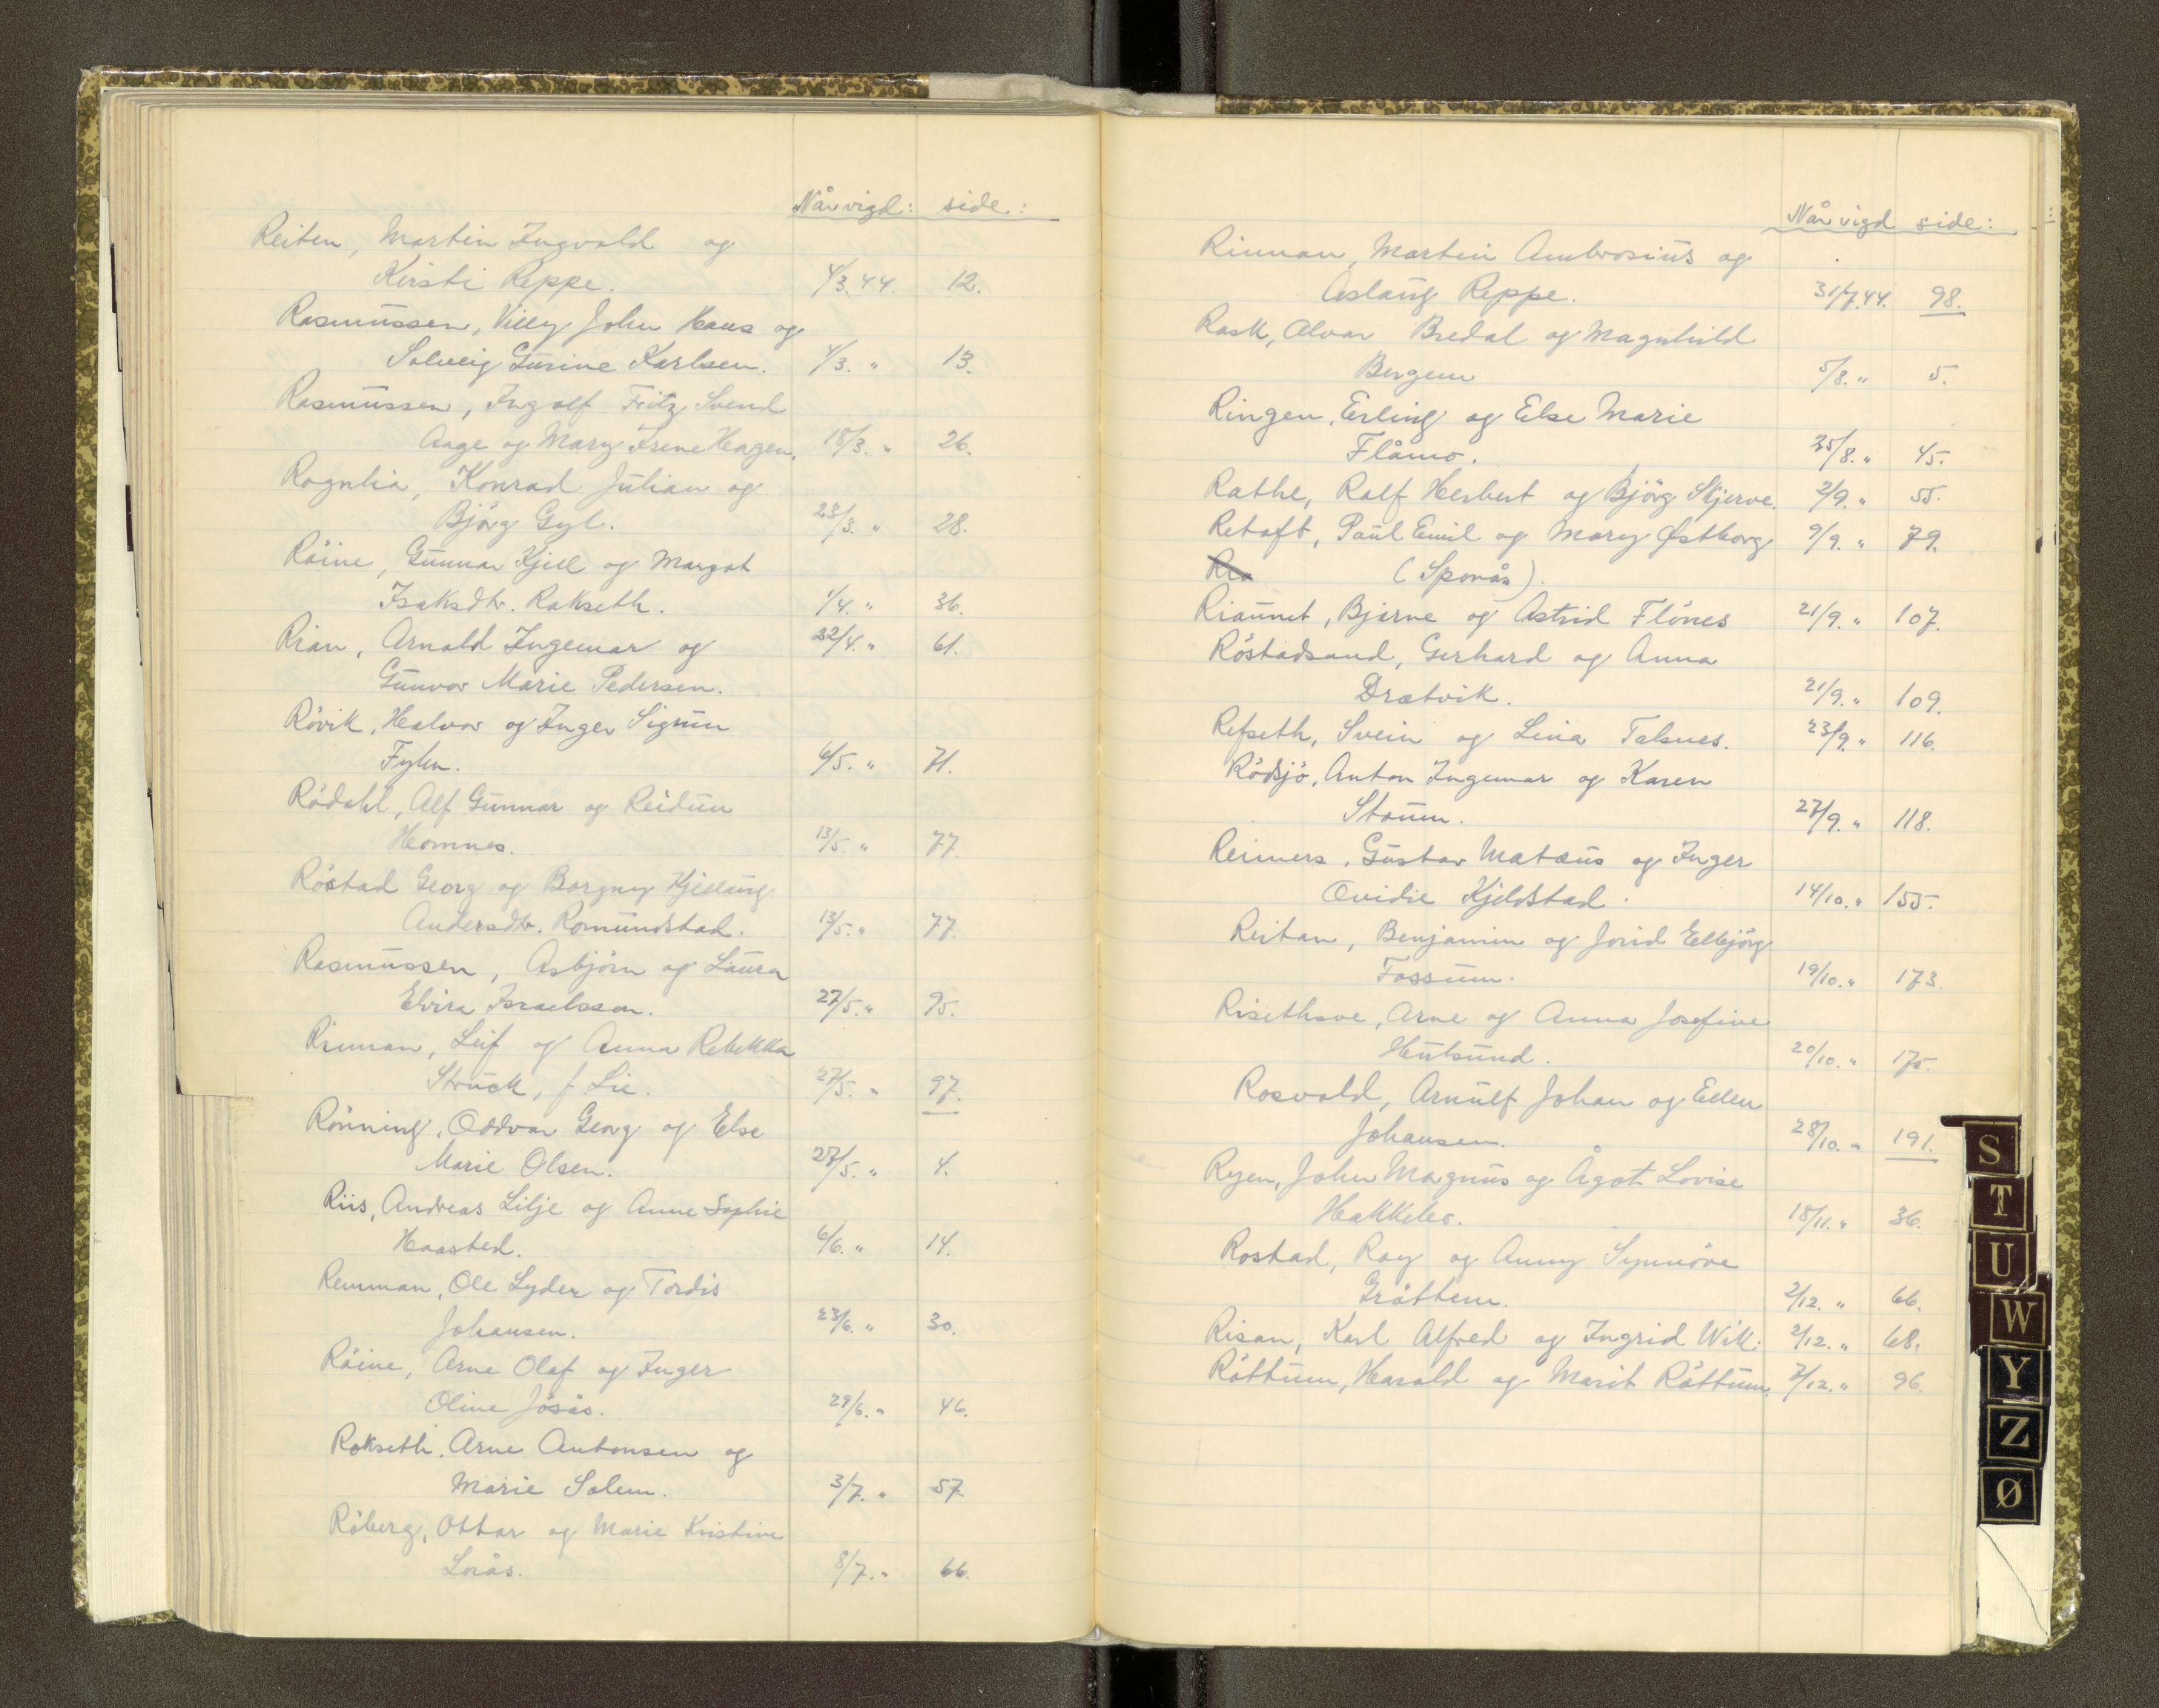 Når vigd: side:
Reiten, Martin Ingvald og
Kirsti Reppe. 4/3.44. 12.
Rasmussen, Villy John Hans og
Solveig Gurine Karlsen. 4/3. " 13.
Rasmussen, Ingolf Fritz Svend
Aage og Mary Irene Hagen. 18/3. " 26.
Rognlia, Konrad Julian og
Bjørg Gyl. 23/3. " 28.
Röine, Gunnar Kjell og Margot
Isaksdtr. Rokseth. 1/4. " 36.
Rian, Arnold Ingemar og 22/4. " 61.
Gunvor Marie Pedersen.
Rövik, Halvor og Inger Sigrun
Fylen. 6/5. " 71.
Rödahl, Alf Gunnar og Reidun
Homnes. 13/5. " 77.
Röstad Georg og Borgny Kjellaug
Andersdtr. Romundstad. 13/5. " 77.
Rasmussen, Asbjörn og Laura
Elvira Israelsson. 27/5. " 95.
Rinnan, Leif og Anna Rebekka
Struck, f. Lie. 27/5. " 97.
Rönning, Oddvar Georg og Else
Marie Olsen. 27/5. " 4.
Riis, Andreas Lilje og Anne Sophie
Haasted. 6/6. " 14.
Remman, Ole Lyder og Tordis
Johansen. 23/6. " 30.
Röine, Arne Olaf og Inger
Oline Jösås. 29/6. " 46.
Rokseth, Arne Antonsen og
Marie Solem. 3/7. " 57.
Röberg, Ottar og Marie Kristine
Lorås. 8/7. " 66.
Når vigd side:
Rinnan, Martin Ambrosius og
Aslaug Reppe. 31/7.44. 98.
Rask, Alvar Bredal og Magnhild
Bergem 5/8. " 5.
Ringen, Erling og Else Marie
Flåmo. 25/8. " 45.
Rathe, Ralf Herbert og Bjørg Skjerve. 2/9. " 55.
Retoft, Paul Emil og Mary Østborg 9/9. " 79.
Ria (Sponås).
Riaunet, Bjarne og Astrid Flönes 21/9. " 107.
Röstadsand, Gerhard og Anna
Dratvik. 21/9. " 109.
Refseth, Svein og Lina Talsnes. 23/9. " 116.
Rödsjö, Anton Ingemar og Karen
Staum. 27/9. " 118.
Reimers, Gustav Matæus og Inger
Ovidie Kjeldstad. 14/10. " 155.
Reitan, Benjamin og Jorid Ellbjörg
Fossum. 19/10. " 173.
Risethhove, Arne og Anna Josefine
Hulsund. 20/10. " 175.
Rosvold, Arnulf Johan og Ellen
Johansen. 28/10. " 191.
Ryen, John Magnus og Ågot Lovise
Hakkelso. 18/11. " 36.
Rostad, Roy og Anny Synnöve
Gråttem. 2/12. " 66.
Risan, Karl Alfred og Ingrid Wik. 2/12. " 68.
Röttum, Harald og Marit Röttum. 7/12. " 96.
S
T
U
W
Y
Z
Ø